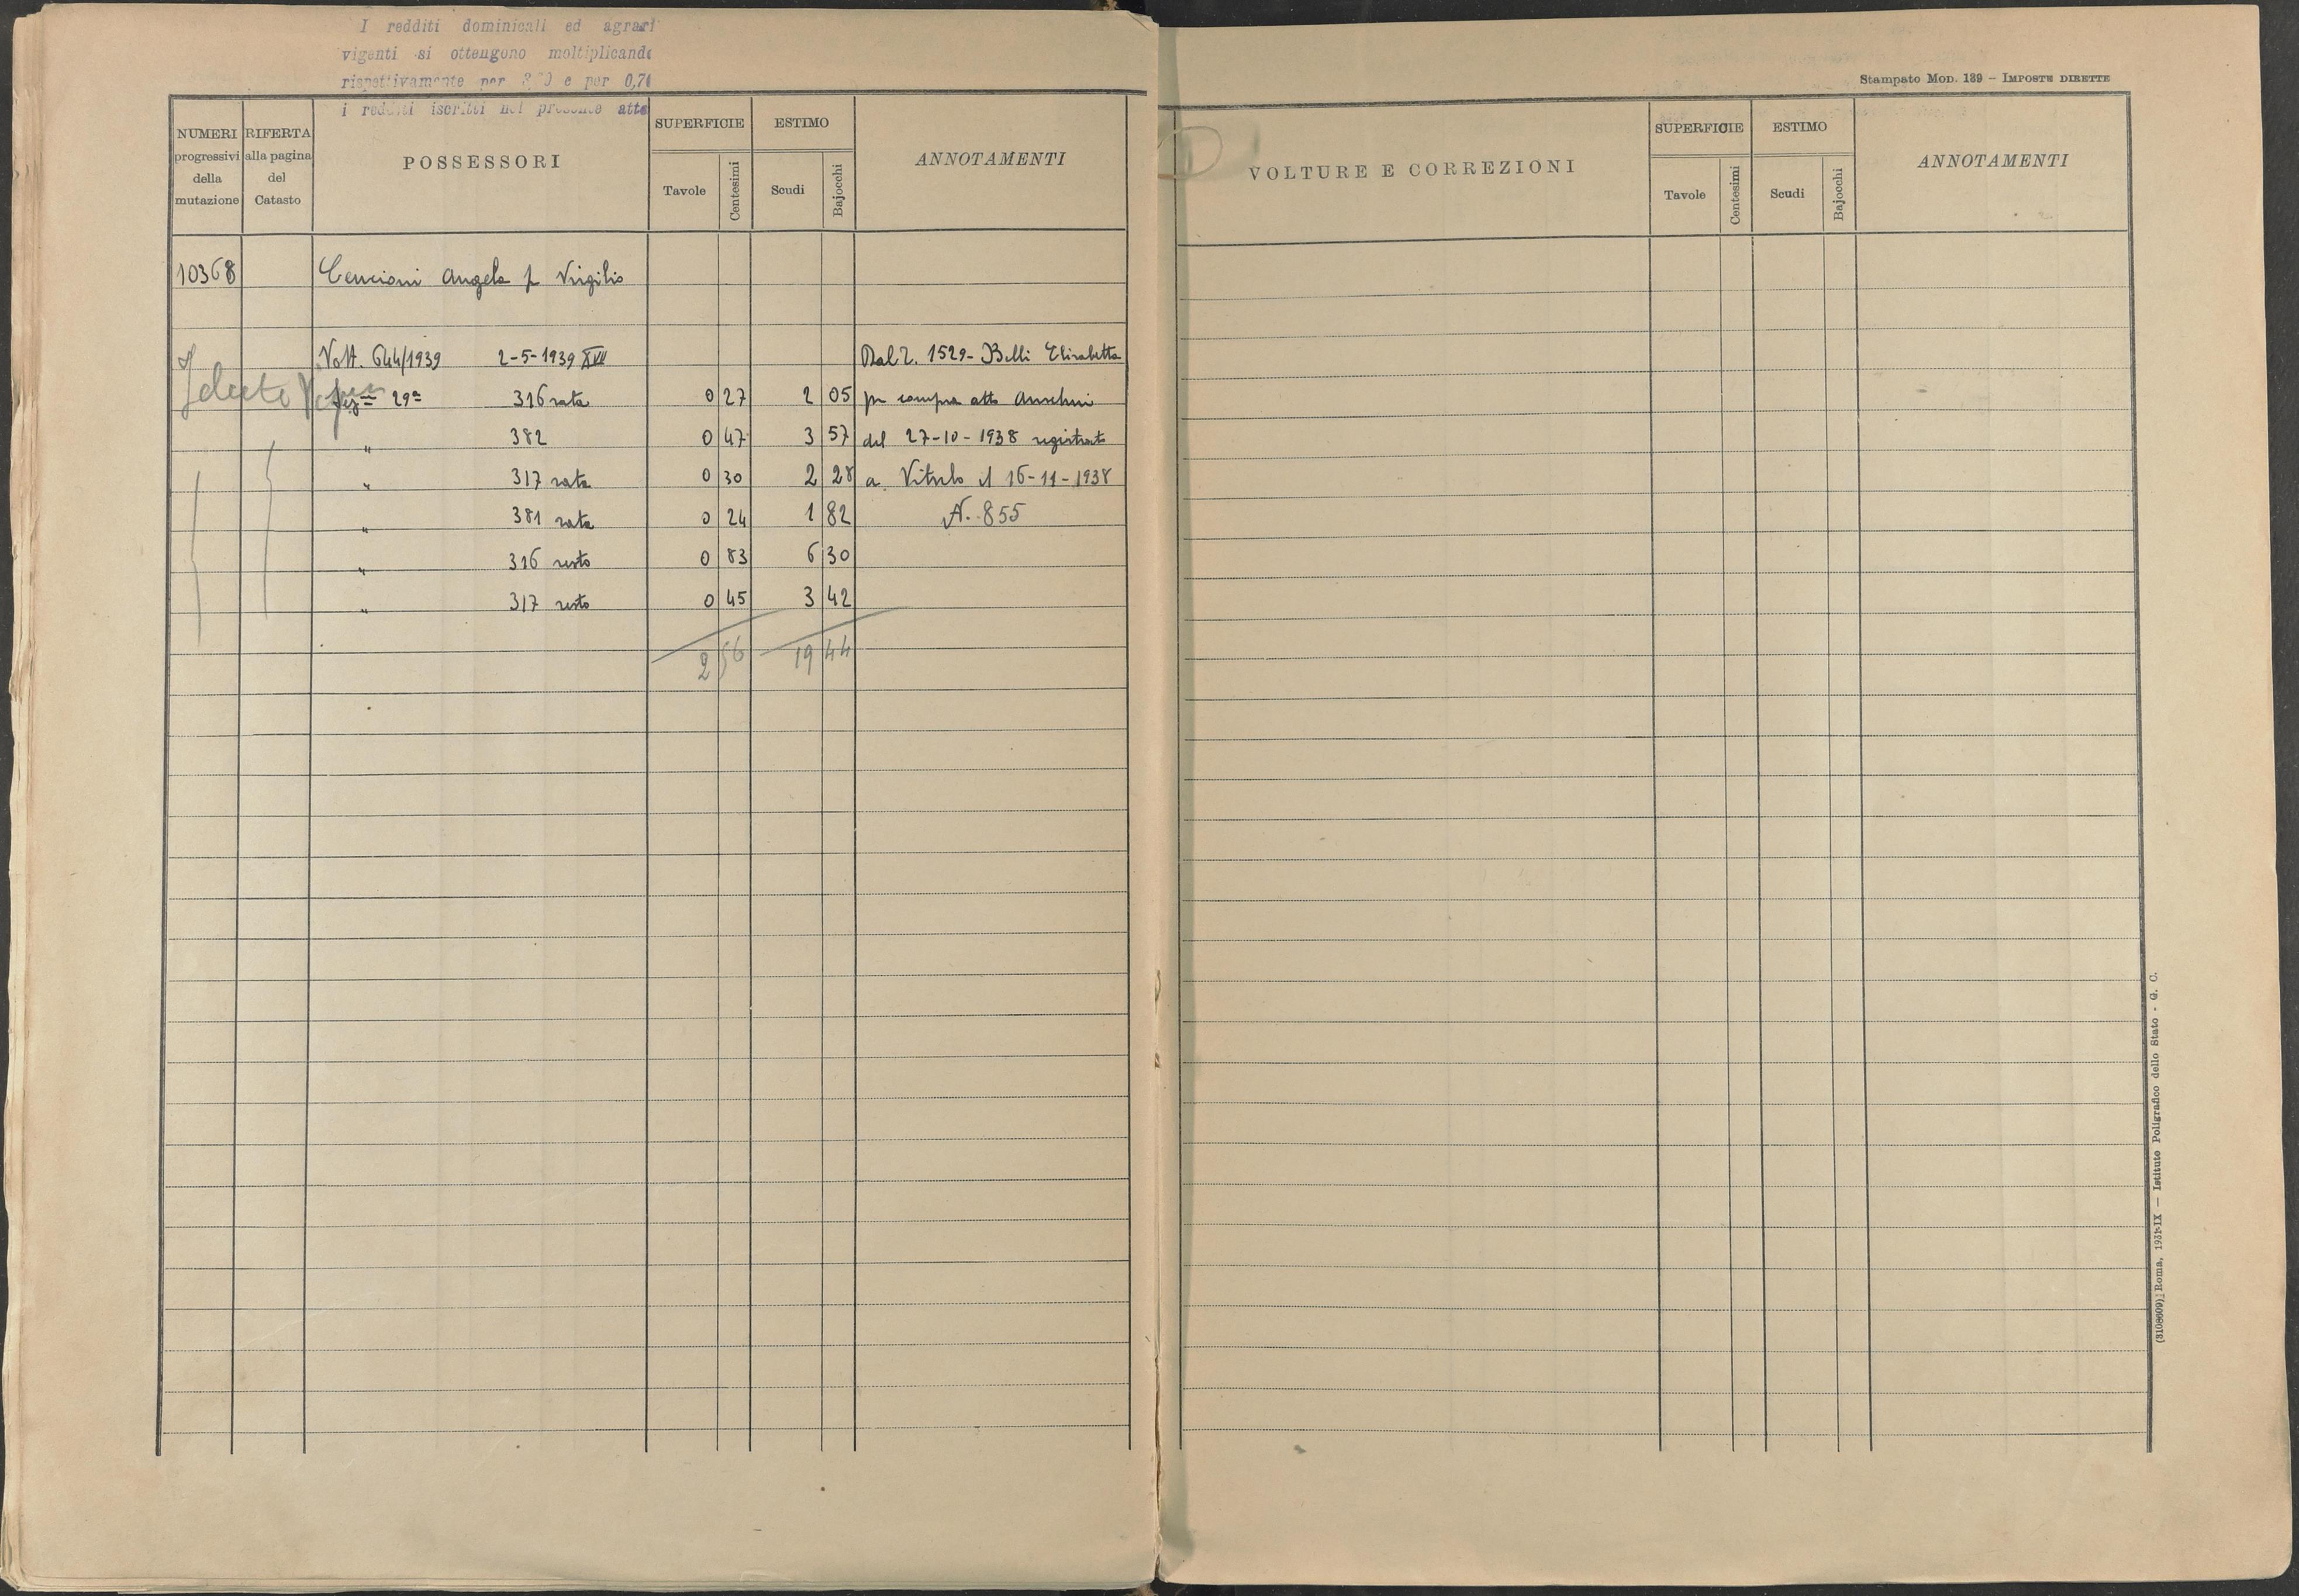 I redditi dominicali ed agrari
vigenti si ottengono moltiplicando
rispettivamente per e per 0,70
i redditi iscritti nel presente atto
NUMERI progressivi della mutazione
RIFERTA alla pagina del Catasto
POSSESSORI
SUPERFICIE
Tavole Centesimi
ESTIMO
Scudi Bajocchi
ANNOTAMENTI
10368 Cencioni Angela f Virgilio
Volt. 644/1939 2-5-1939 XVII Dal 2. 1529 - Belli Elisabetta
Sez= 29a 316 rata 0 27 2 05 per compra atto Anselmi
" 382 0 47 3 57 del 27-10-1938 registrato
" 317 rata 0 30 2 28 a Viterbo il 16-11-1938
" 381 rata 0 24 1 82 N. 855
" 316 resto 0 83 6 30
" 317 resto 0 45 3 42
2 56 19 44
Stampato Mod. 189 – Imposte dirette
VOLTURE E CORREZIONI
SUPERFICIE
Tavole Centesimi
ESTIMO
Scudi Bajocchi
ANNOTAMENTI
Roma, 1931-IX — Istituto Poligrafico dello Stato - G. C.